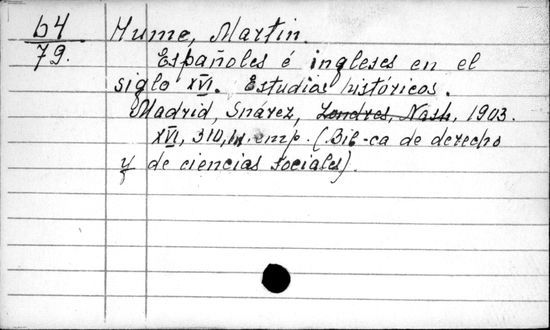 64 Hume, Martin.
79. Españoles é ingleses en el
siglo XVI. Estudios históricos.
Madrid, Suárez, Londres, Nash, 1903.
XVI, 310, emp. (Bib-ca de derecho
y de ciencias sociales).